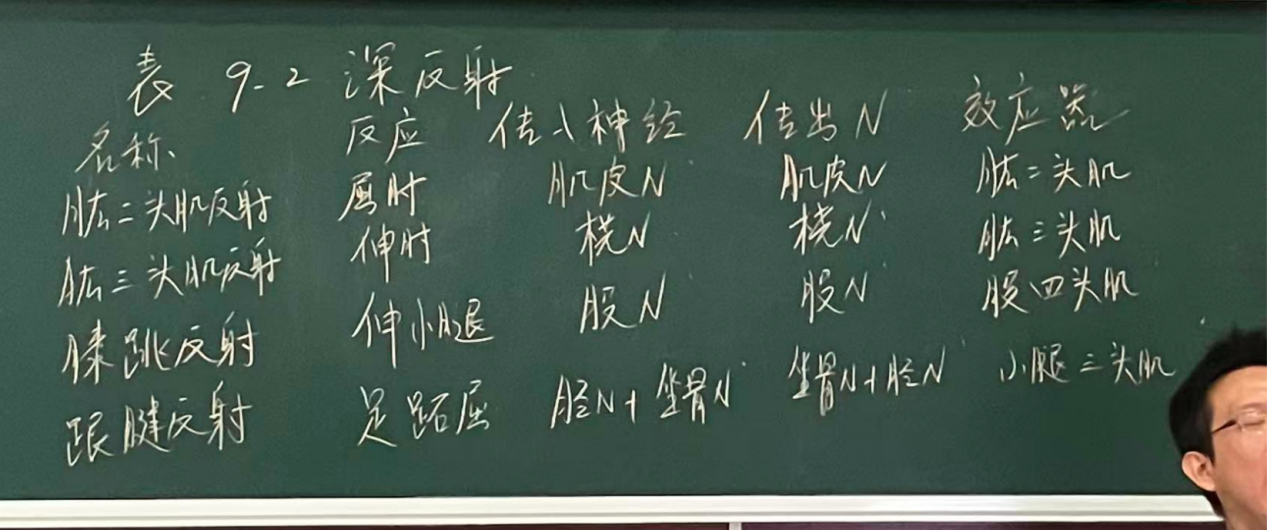 表 9-2 深反射
名称、 反应 传入神经 传出N 效应器
肱二头肌反射 屈肘 肌皮N 肌皮N 肱二头肌
肱三头肌反射 伸肘 桡N 桡N 肱三头肌
膝跳反射 伸小腿 股N 股N 股四头肌
跟腱反射 足跖屈 胫N+坐骨N 坐骨N+胫N 小腿三头肌